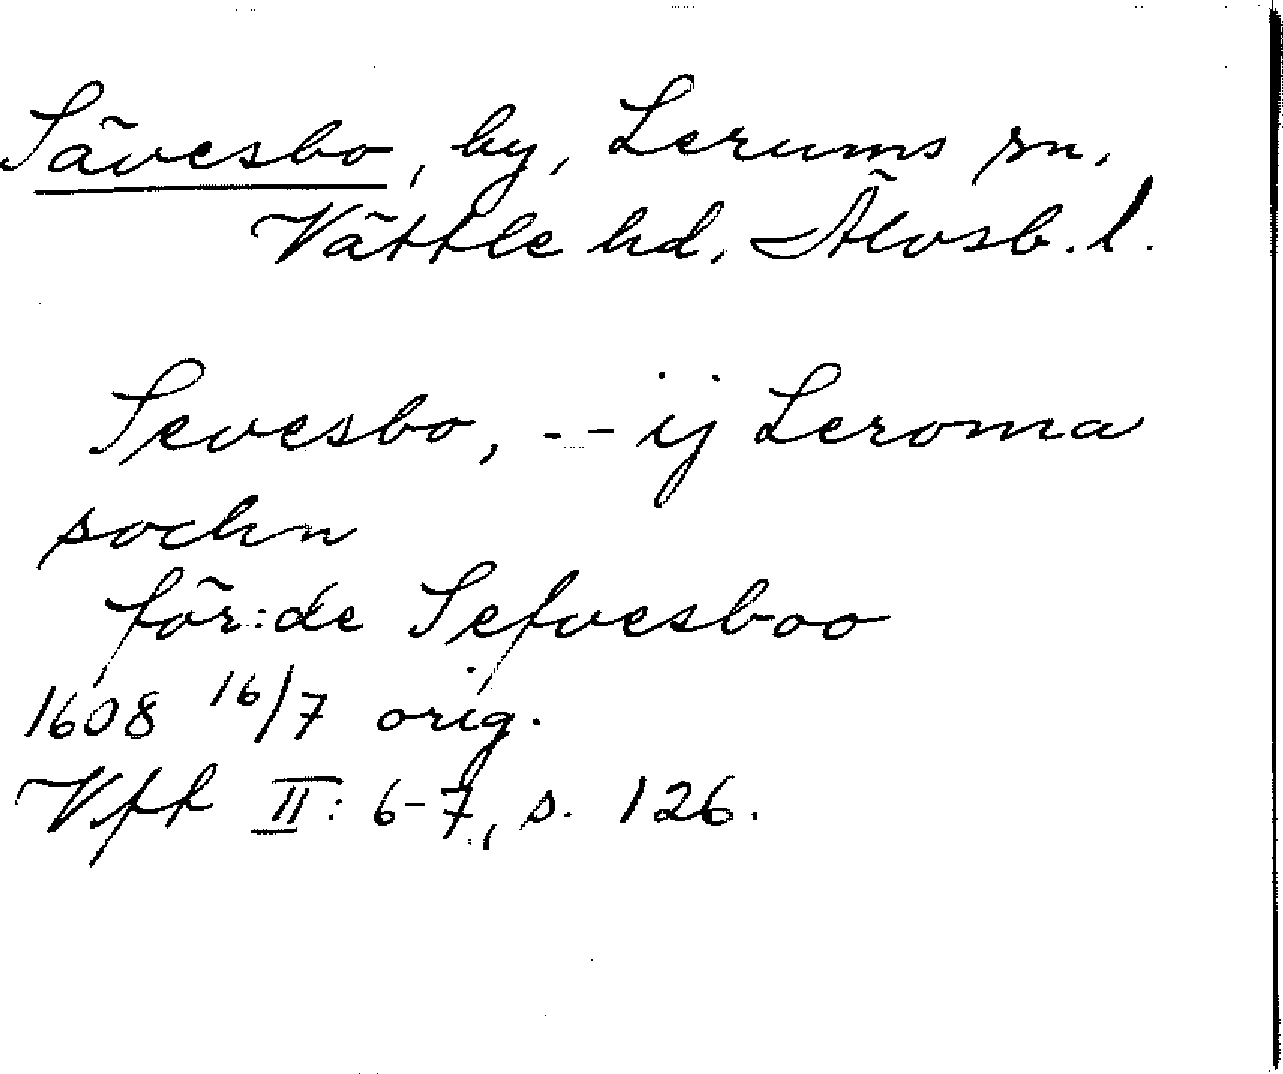 Sävesbo, by, Lerums sn,
Vättle hd, Älvsb. l.
Sevesbo, -- ij Leroma
sochn
för:de Sefvesboo
1608 16/7 orig.
Vfk II: 6-7, s. 126.